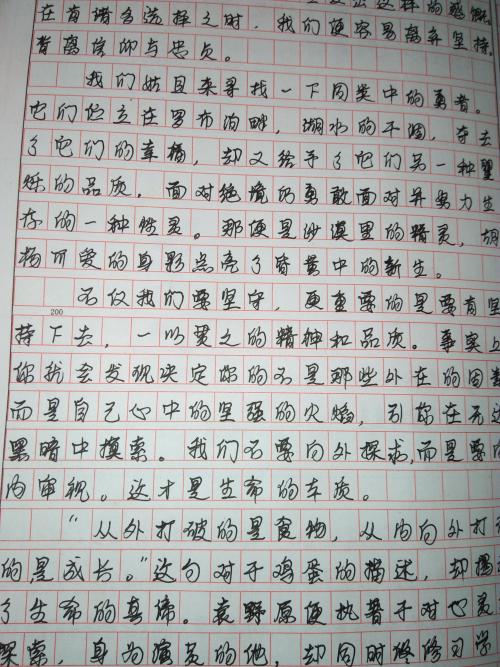 在有诸多选择之时，我们便容易离弃坚持。
背离信仰与忠贞。
我们姑且来寻找一下同类中的勇者。
它们位立在罗布泊畔，湖水的干涸，夺去
了它们的幸福，却又给予了它们另一种
烁的品质，面对绝境的勇敢面对并努力生
存的一种性灵。那便是沙漠里的精灵，胡
杨可爱的身影点亮了昏黄中的新生。
不仅我们要坚守，更重要的是要有坚
200
持下去，一以贯之的精神和品质。事实上
你就会发现决定你的不是那些外在的因素
而是自己心中的坚强的火焰，引你在无边
黑暗中摸索。我们不要向外探求,而是要向
内审视。这才是生命的本质。
“从外打破的是食物，从内向外打
的,是成长。”这句对于鸡蛋的描述，却揭
了生命的真谛。袁野原便执着于对心灵
探索，身为演员的他，却同时做修习学